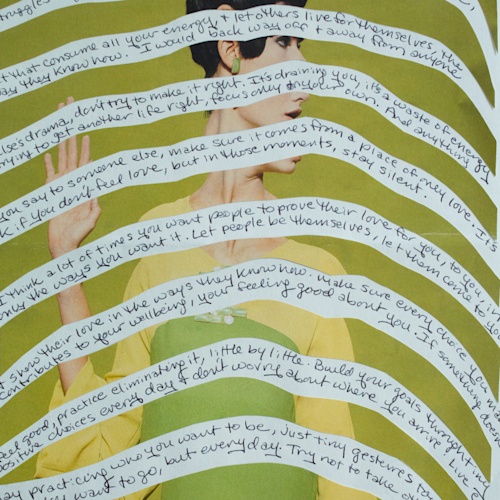 ruggles
t that consume all your energy, + let others live for themselves, the
way they know how. I would back way off + away from anyone
else's drama, don't try to make it right. It's draining you, it's a waste of energy
trying to get another life right, focus only on your own. And anything
you say to someone else, make sure it comes from a place of only love. It's
k. if you don't feel love, but in those moments, stay silent.
I think a lot of times you want people to prove their love for you, to you, in
only the ways you want it. Let people be themselves, let them come to
show their love in the ways they know how. make sure every choice you
contributes to your wellbeing, your feeling good about you. If something does
feel good, practice eliminating it, little by little. Build your goals through
positive choices every day & don't worry about where you arrive! Live
practicing who you want to be, just tiny gestures
want to go, but everyday. Try not to take